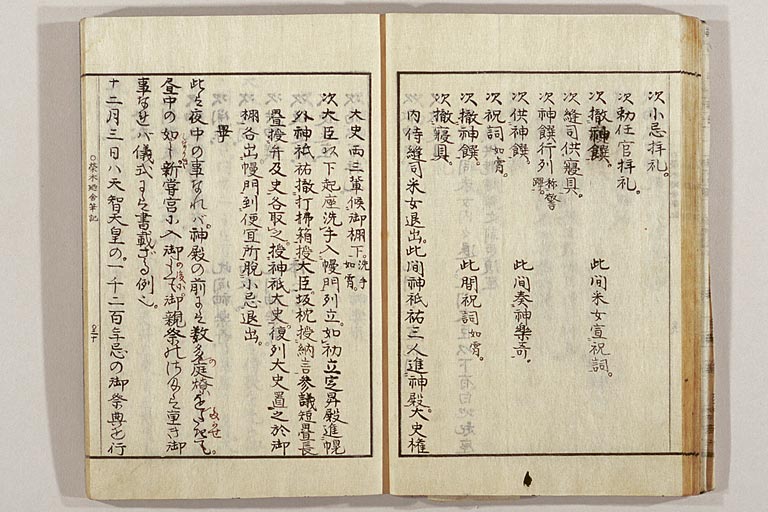 次小忌拝礼。
次勅任官拝礼。
次撤神饌。 此間采女宣祝詞。
次縫司供寝具。
次神饌行列 称警蹕。
次供神饌。 此間奏神楽哥。
次祝詞 如宵。
次撤神饌。 此間祝詞 如宵。
次撤寝具。
内侍縫司采女退出。此間神祇祐三人進神殿大史権
大史両三輩候御棚下。洗手如宵
次大臣以下起座洗手入幔門列立。如初立定昇殿進幌
外神祇祐撤打拂箱授大臣坂枕授納言参議短畳長
畳授弁及史各取之。授神祇大史。復列大史置之於御
棚各出幔門到便宜所脱小忌退出。
畢
此は夜中の事なれバ。神殿の前には数多庭燎をたきて。
昼中の如し新嘗宮に入御ありて御親祭
事なせバ儀式には書載ざる例也。
十二月三日ハ天智天皇の。一千二百年忌の御祭典を行